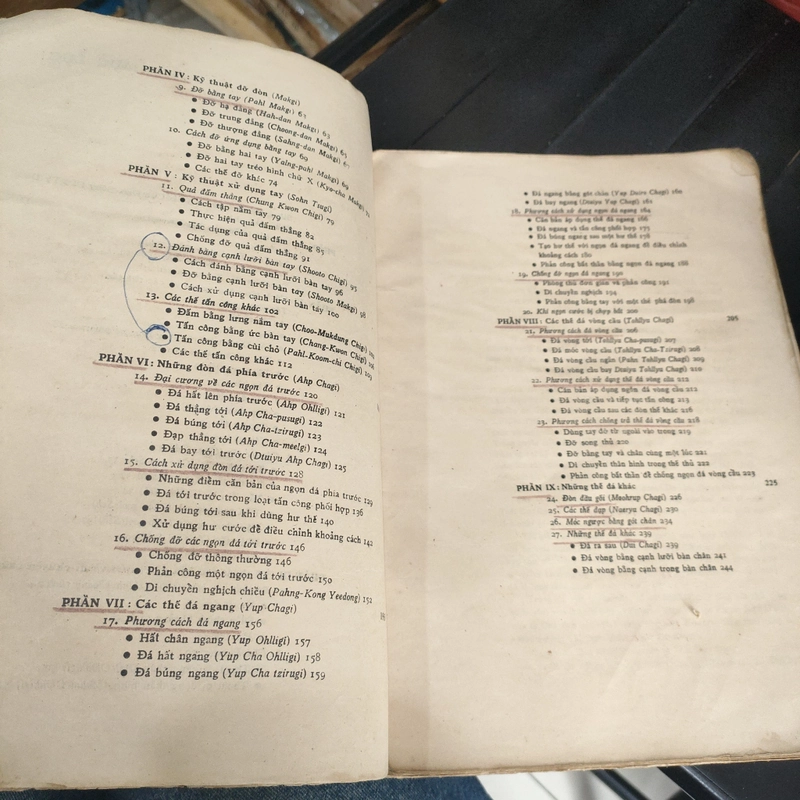 PHẦN IV : Kỹ thuật đỡ đòn (Makgi)
9. Đỡ bằng tay (Pahl Makgi) 63
● Đỡ hạ đẳng (Hah-dan Makgi) 63
● Đỡ trung đẳng (Choong-dan Makgi)
● Đỡ thượng đẳng (Sahng-dan Makgi)
10. Cách đỡ ứng dụng bằng tay 69
● Đỡ bằng hai tay (Yahng-pahl Makgi) 69
● Đỡ hai tay tréo hình chữ X (Kyo-cha Makgi) 71
● Các thế đỡ khác 74
PHẦN V : Kỹ thuật xử dụng tay (Sohn Tsugi)
11. Quả đấm thẳng (Chung Kwon Chigi) 79
● Cách tập nắm tay 79
● Thực hiện quả đấm thẳng 82
● Tác dụng của quả đấm thẳng 85
● Chống đỡ quả đấm thẳng 91
12. Đánh bằng cạnh lưỡi bàn tay (Shooto Chigi) 95
● Cách đánh bằng cạnh lưỡi bàn tay 96
● Đỡ bằng cạnh lưỡi bàn tay (Shooto Makgi) 98
● Cách xử dụng cạnh lưỡi bàn tay 100
13. Các thế tấn công khác 102
● Đấm bằng lưng nắm tay (Choo-Mukdung Chigi)
● Tấn công bằng ức bàn tay (Chang-Kwon Chigi)
● Tấn công bằng cùi chỏ (Pahl-Koom-chi Chigi) 109
● Các thế tấn công khác 112
PHẦN VI : Những đòn đá phía trước (Ahp Chagi)
14. Đại cương về các ngọn đá trước 120
● Đá hất lên phía trước (Ahp Ohlligi) 121
● Đá thẳng tới (Ahp Cha-pusugi) 122
● Đá búng tới (Ahp Cha-tzirugi) 123
● Đạp thẳng tới (Ahp Cha-meelgi) 124
● Đá bay tới trước (Dtuiyu Ahp Chagi) 125
15. Cách xử dụng đòn đá tới trước 128
● Những điểm căn bản của ngọn đá phía trước 129
● Đá tới trước trong loạt tấn công phối hợp 136
● Đá búng tới sau khi dùng hư thế 140
● Xử dụng hư cước để điều chỉnh khoảng cách 142
16. Chống đỡ các ngọn đá tới trước 146
● Chống đỡ thông thường 146
● Phản công một ngọn đá tới trước 150
● Di chuyển nghịch chiều (Pahng-Kong Yeedong) 152
PHẦN VII : Các thế đá ngang (Yup Chagi)
17. Phương cách đá ngang 156
● Hất chân ngang (Yup Ohlligi) 157
● Đá hất ngang (Yup Cha Ohlligi) 158
● Đá búng ngang (Yup Cha tzirugi) 159
● Đá ngang bằng gót chân (Yup Duiro Chagi) 160
● Đá bay ngang (Dtuiyu Yup Chagi) 161
18. Phương cách sử dụng ngọn đá ngang 164
● Căn bản áp dụng thế đá ngang 164
● Đá ngang và tấn công phối hợp 173
● Đá búng ngang sau một hư thế 178
● Tạo hư thế với ngọn đá ngang để điều chỉnh
khoảng cách 180
● Phản công bất thần bằng ngọn đá ngang 188
19. Chống đỡ ngọn đá ngang 190
● Phòng thủ đơn giản và phản công 191
● Di chuyển nghịch 194
● Phản công bằng với một thế phá đòn 198
20. Khi ngọt nước bị chụp bắt 200
PHẦN VIII : Các thế đá vòng cầu (Tohllyu Chagi) 205
21. Phương cách đá vòng cầu 206
● Đá vòng tới (Tohllyu Cha-pusugi) 207
● Đá móc vòng cầu (Tohllyu Cha-Tzirugi) 208
● Đá vòng cầu ngắn (Pahn Tohllyu Chagi) 209
● Đá vòng cầu bay (Dtuiyu Tohllyu Chagi) 210
22. Phương cách xử dụng thế đá vòng cầu 212
● Căn bản áp dụng đòn đá vòng cầu 212
● Đá vòng cầu và tiếp tục tấn công 213
● Đá vòng cầu sau các đòn thế khác 216
23. Phương cách chống trả thế đá vòng cầu 218
● Dùng tay đỡ từ ngoài vào trong 219
● Đỡ song thủ 220
● Đỡ bằng tay và chân cùng một lúc 221
● Di chuyển thân hình trong thế thủ 222
● Phản công bất thần để chống ngọn đá vòng cầu 223
PHẦN IX : Những thế đá khác 225
24. Đòn đầu gối (Moohrup Chagi) 226
25. Các thế đạp (Naeryu Chagi) 230
26. Móc ngược bằng gót chân 234
27. Những thế đá khác 239
● Đá ra sau (Dui Chagi) 239
● Đá vòng bằng cạnh lưỡi bàn chân 241
● Đá vòng bằng cạnh trong bàn chân 244